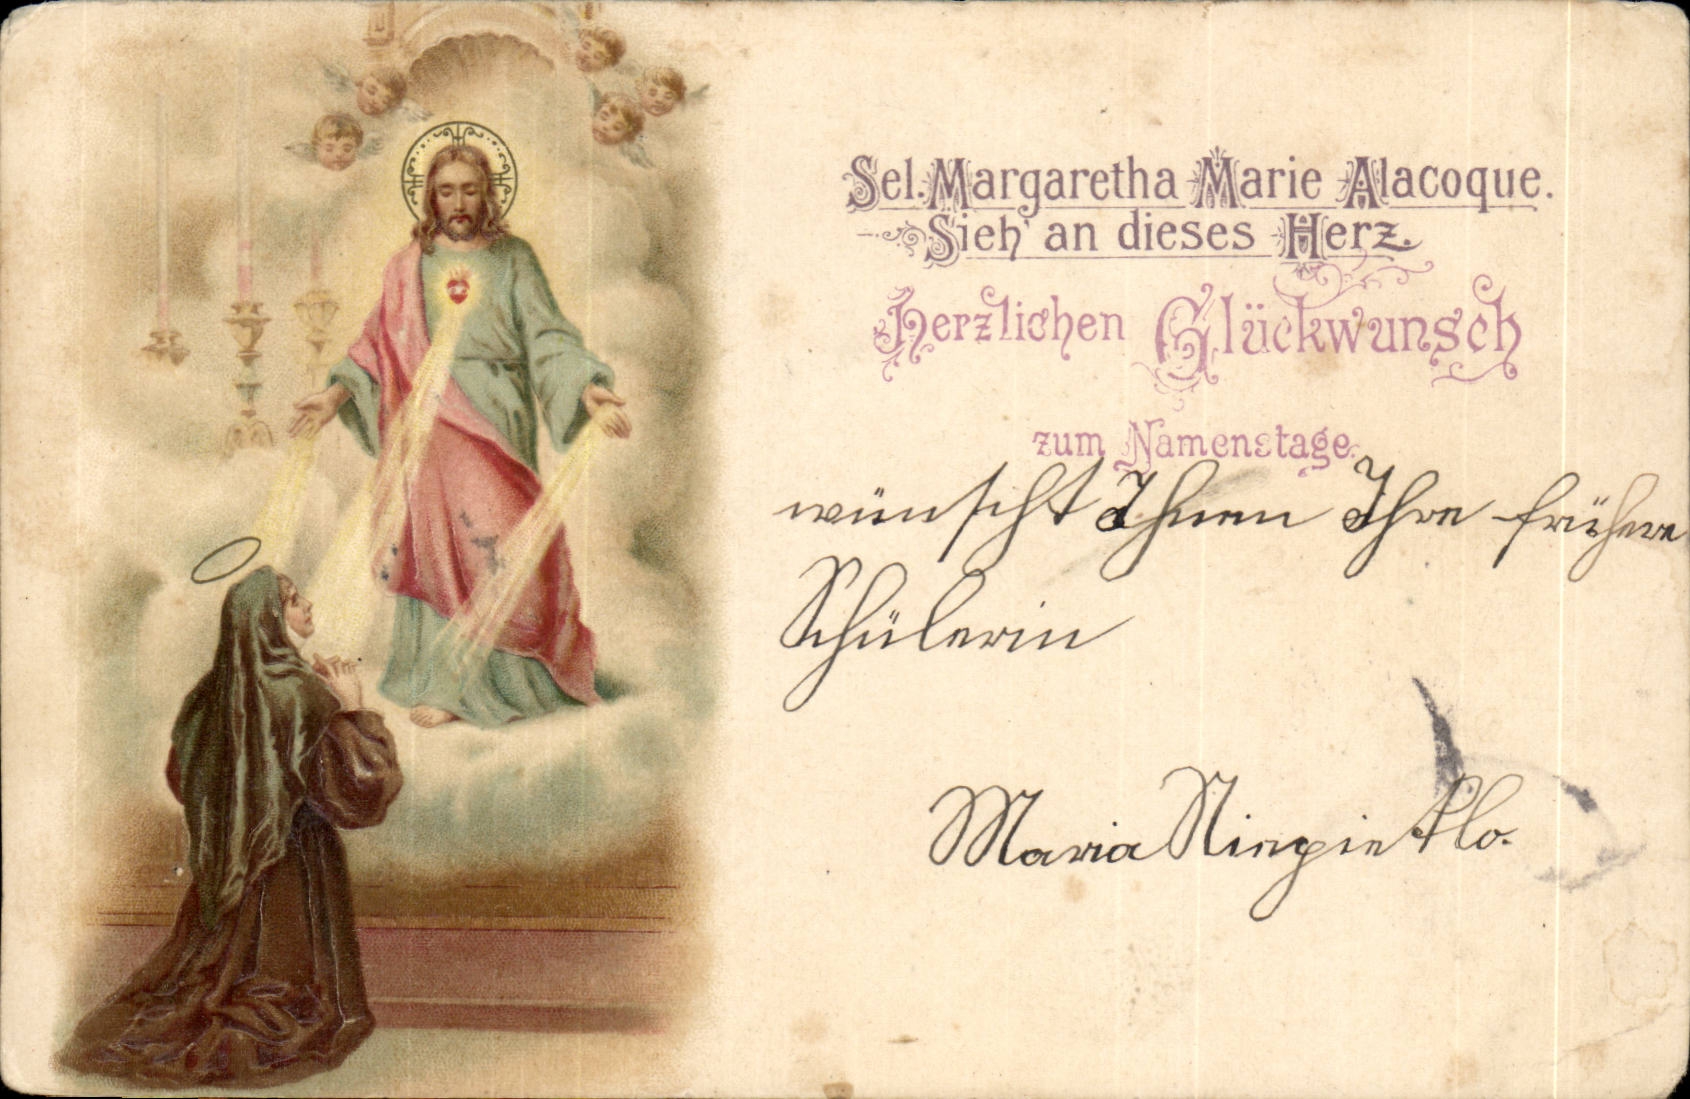 Sel. Margaretha Marie Alacoque.
Sieh' an dieses Herz.
Herzlichen Glückwunsch
zum Namenstage.
wünscht Ihnen Ihre frühere
Schülerin
Maria